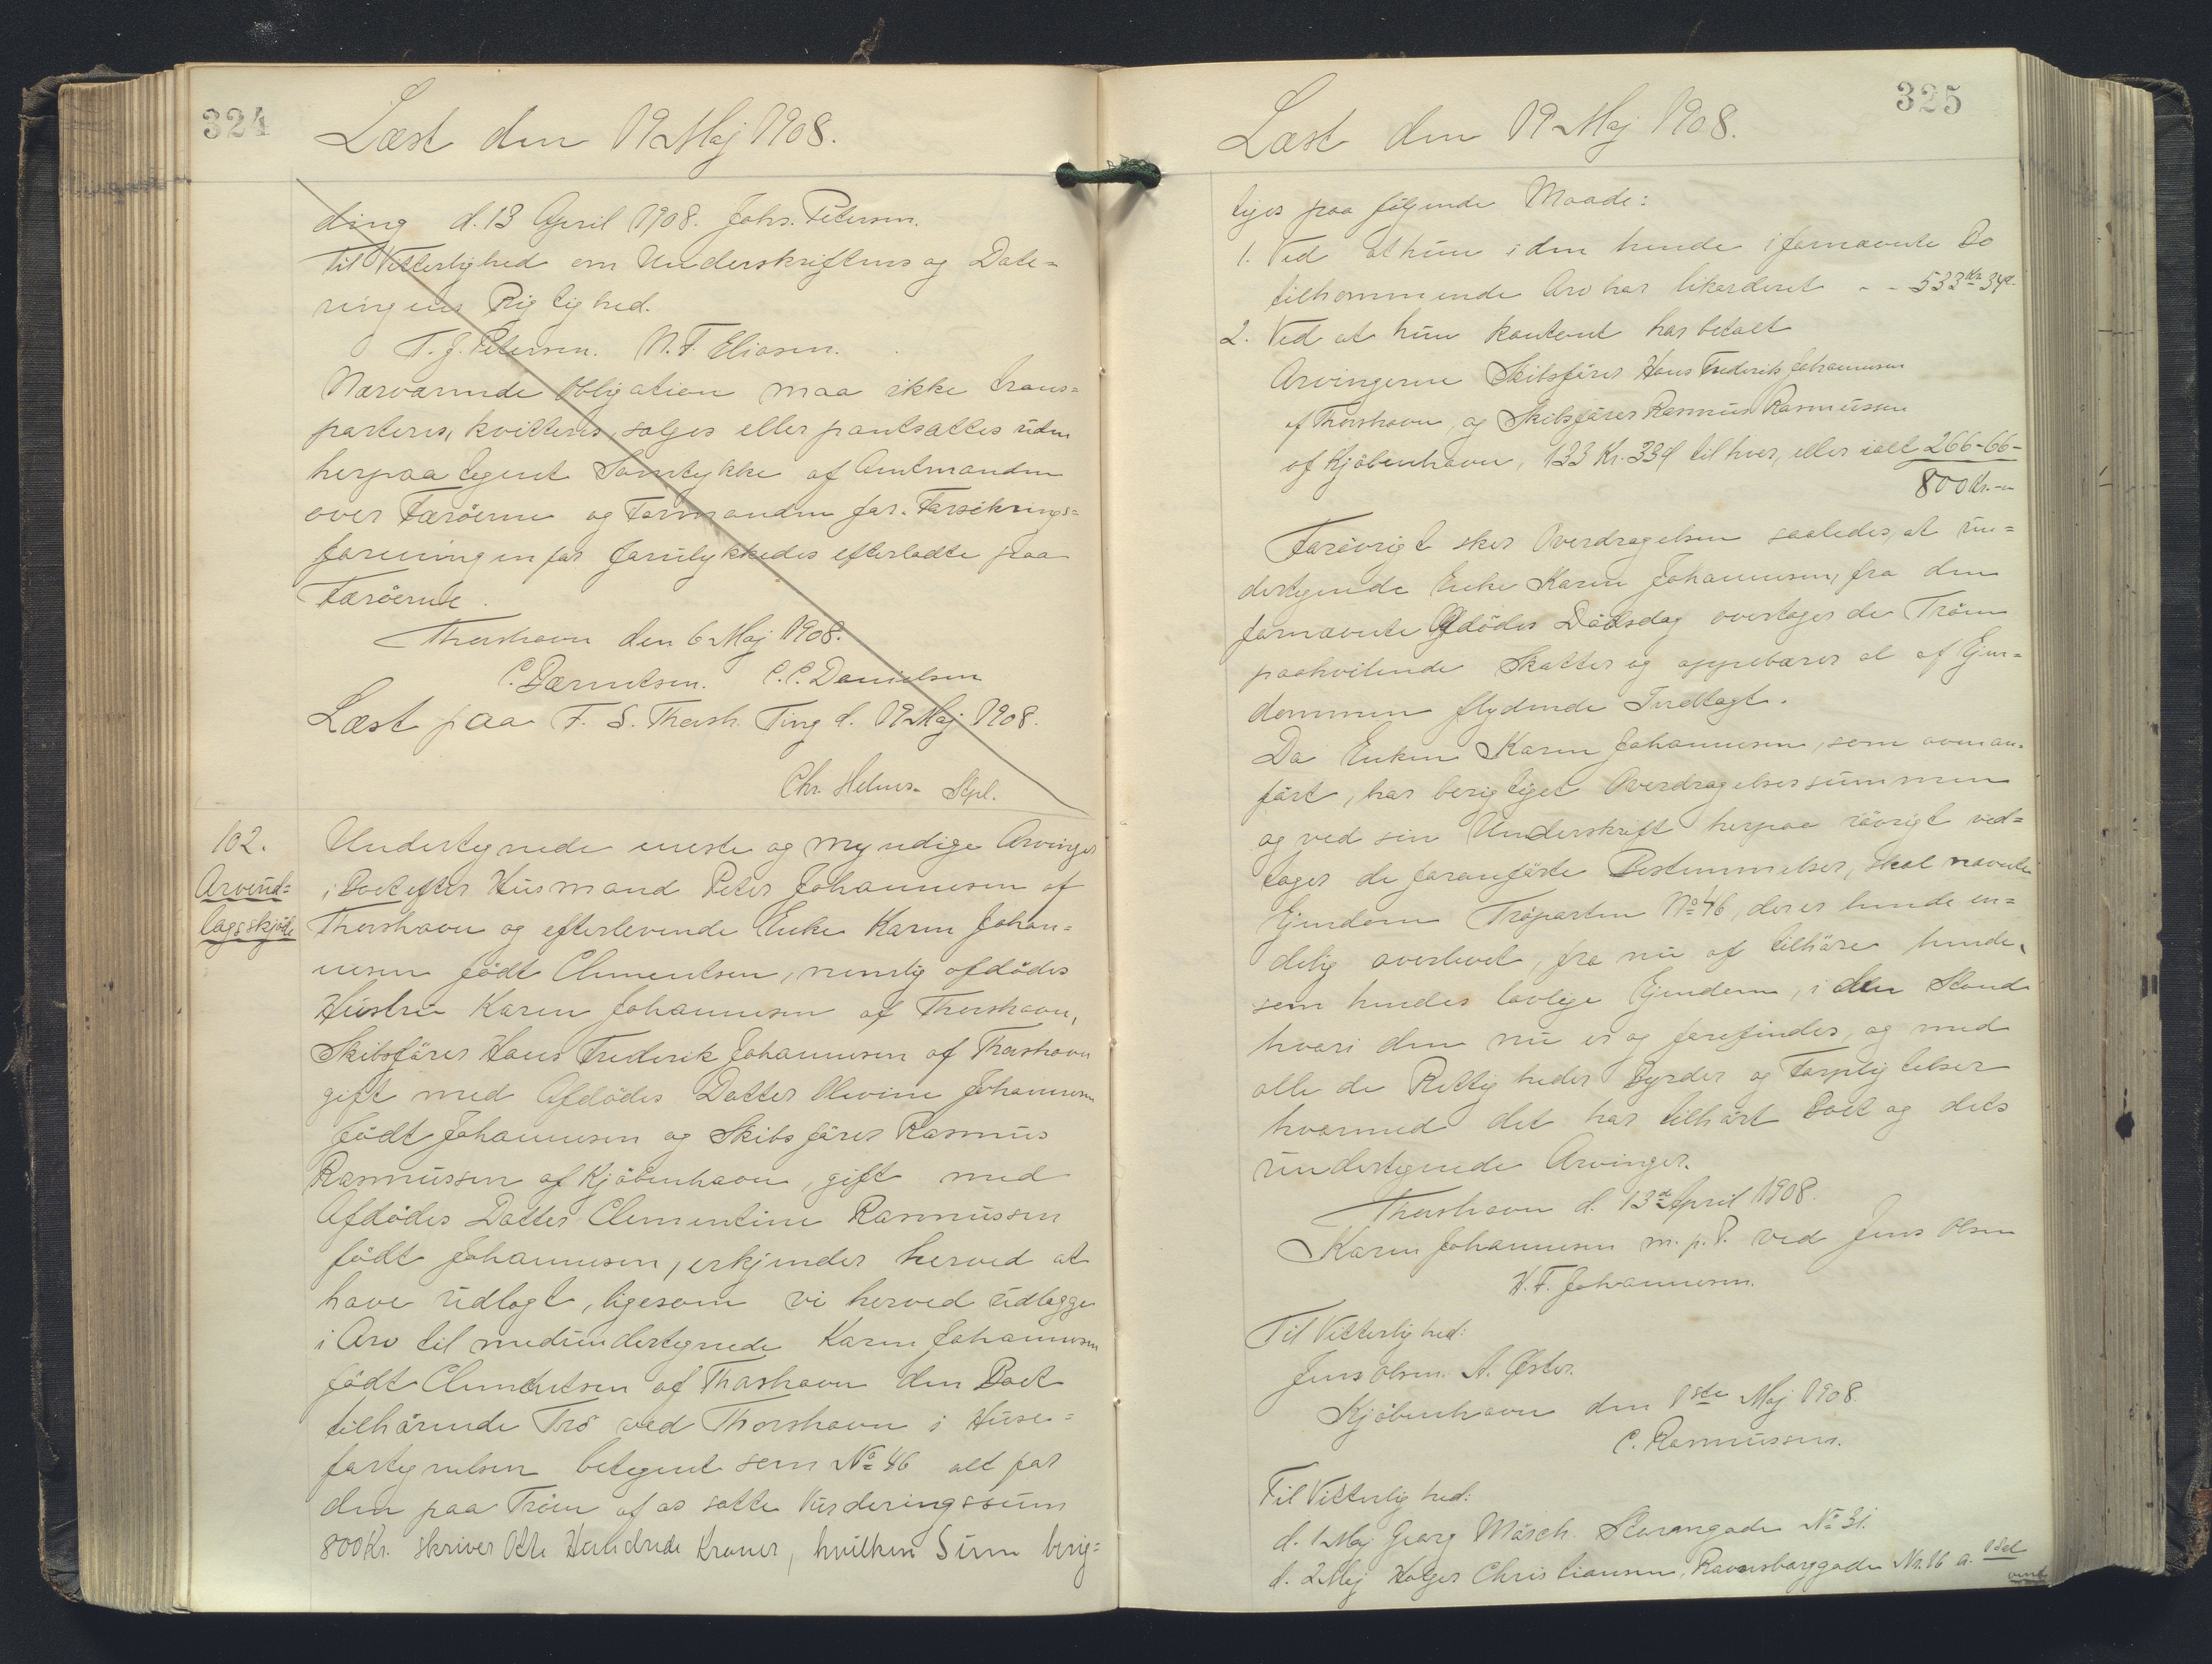 324
Læst den 19 Maj 1908.
ding d. 13 April 1908. Johs. Petersen.
Til Vitterlighed om Underskriftens og Date=
ringens Rigtighed.
T. J. Petersen. N. F. Eliasen.
Nærværende Obligation maa ikke trans=
porteres, kvitteres, sælges eller pantsættes uden
herpaa tegnet Samtykke af Amtmanden
over Færöerne og Formanden for Forsikrings=
foreningen for forulykkedes efterladte paa
Færöerne.
Thorshavn den 6 Maj 1908.
C. Bærentsen. C. C. Danielsen
Læst paa F. S. Thorsh. Ting d. 19 Maj 1908.
Chr. Helms. Kpl.
102.
Arveud=
lægsskjöde
Undertegnede eneste og myndige Arvinger
i Boet efter Husmand Peter Johannesen af
Thorshavn og efterlevende Enke Karen Johan=
nesen födt Clementsen, nemlig afdödes
Hustru Karen Johannesen af Thorshavn,
Skibsförer Hans Frederik Johannesen af Thorshavn
gift med Afdödes Datter Olevine Johannesen
födt Johannesen og Skibsförer Rasmus
Rasmussen af Kjöbenhavn, gift med
Afdödes Datter Clementine Rasmussen
födt Johannesen, erkjender herved at
have udlagt, ligesom vi herved udlægge
i Arv til medundertegnede Karen Johannesen
födt Clementsen af Thorshavn den Boet
tilhörende Trö ved Thorshavn i Huse=
fortegnelsen betegnet som No 46 alt for
den paa Tröen af os satte Vurderingssum
800 Kr. skriver Otte Hundrede Kroner, hvilken Sum berig=
325
Læst den 19 Maj 1908.
tiges paa fölgende Maade:
1. Ved at hun i den hende i fornævnte Bo
tilkommende Arv har likvideret - - 533 Kr 34 Ø.
2. Ved at hun kontant har betalt
Arvingerne Skibsförer Hans Frederik Johannesen
af Thorshavn, og Skibsförer Rasmus Rasmussen
af Kjöbenhavn, 133 Kr. 33 Ø til hver, eller ialt 266-66-
800 Kr. - "
Forövrigt sker Overdragelsen saaledes, at un=
dertegnede Enke Karen Johannesen, fra den
fornævnte Afdödes Dödsdag overtager de Tröen
paahvilende Skatter og oppebærer al af Ejen=
dommen flydende Indtægt.
Da Enken Karen Johannesen, som ovenan=
fört, har berigtiget Overdragelsessummen
og ved sin Underskrift herpaa iövrigt ved=
tager de foranförte Bestemmelser, skal nævnte
Ejendom Tröparten No 46, der er hende en=
delig overladt, fra nu af tilhöre hende,
som hendes lovlige Ejendom, i den Stand
hvori den nu er og forefindes, og med
alle de Rettigheder Byrder og Forpligtelser
hvormed det har tilhört Boet og dets
undertegnede Arvinger.
Thorshavn d. 13 April 1908.
Karen Johannesen m. p. P. ved Jens Olsen
H. F. Johannesen.
Til Vitterlighed:
Jens Olsen. A. Öster.
Kjöbenhavn den 1ste Maj 1908.
C. Rasmussen.
Til Vitterlighed:
d. 1 Maj Georg Mörch. No 31.
d. 2 Maj Holger Christiansen, Ravnsborggade Nr. 16 a.